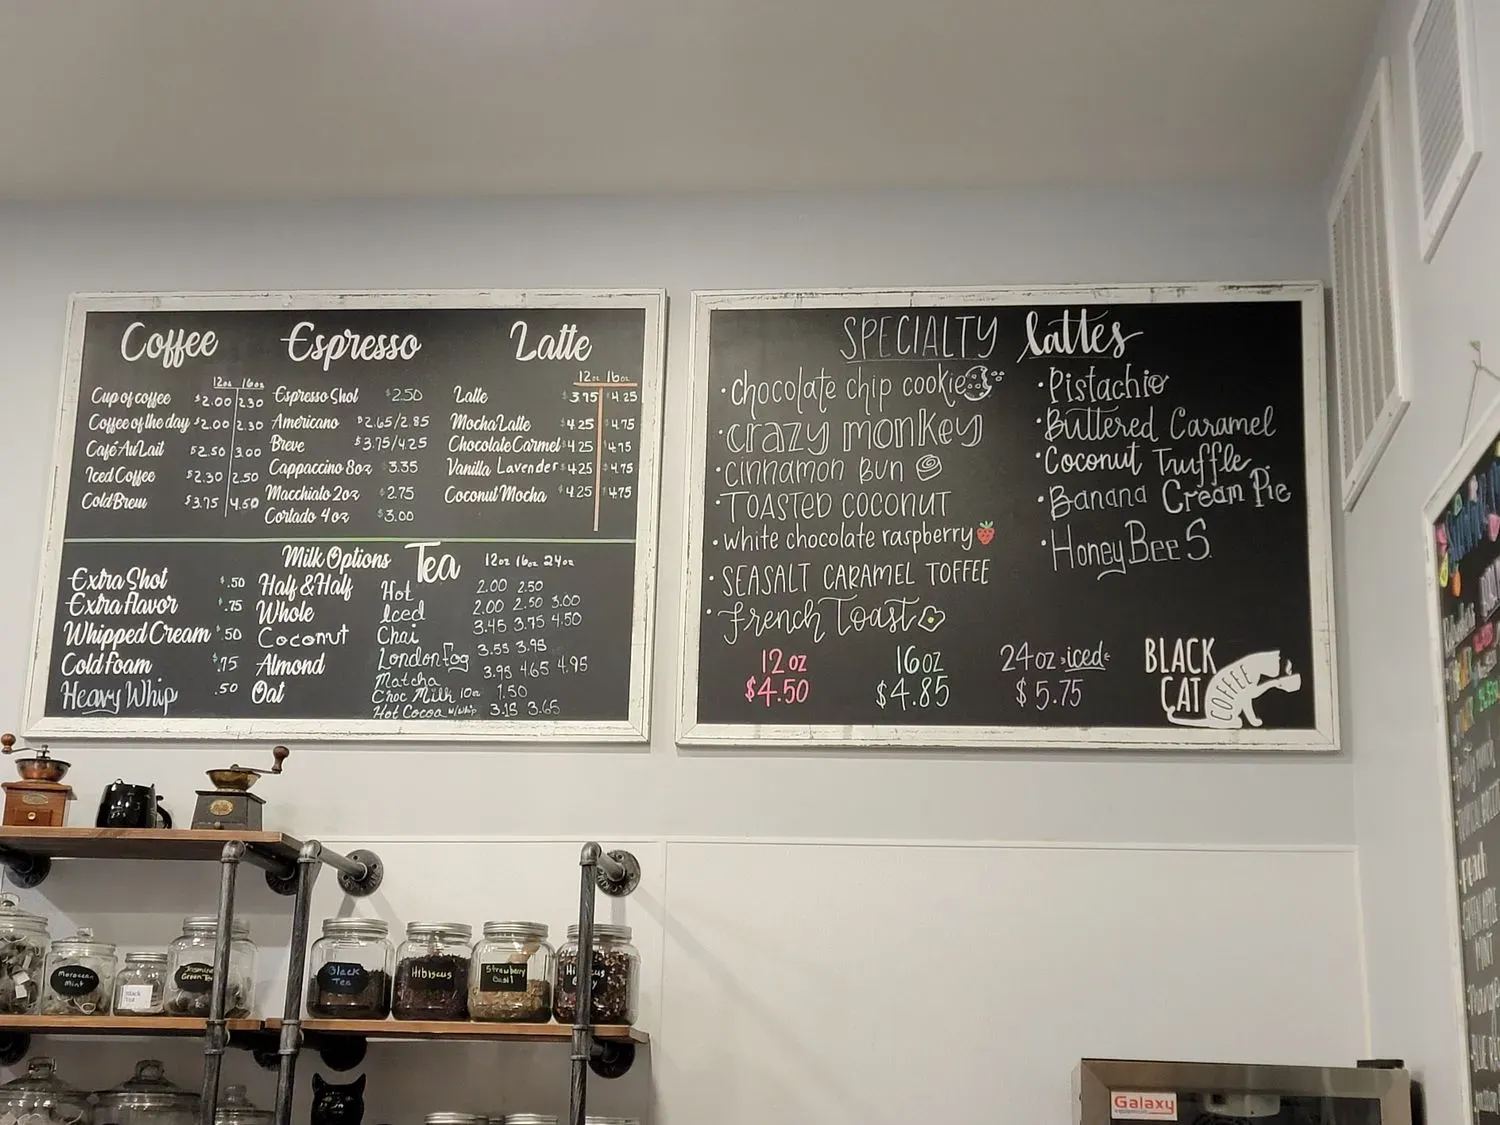 Coffee
12oz 16oz
Cup of coffee $2.00 2.30
Coffee of the day $2.00 2.30
Café Au Lait $2.50 3.00
Iced Coffee $2.30 2.50
Cold Brew $3.75 4.50
Espresso
Espresso Shot $2.50
Americano $2.65/2.85
Breve $3.75/4.25
Cappaccino 8oz $3.35
Macchiato 2oz $2.75
Cortado 4oz $3.00
Latte
12oz 16oz
Latte $3.75 $4.25
Mocha Latte $4.25 $4.75
Chocolate Carmel $4.25 $4.75
Vanilla Lavender $4.25 $4.75
Coconut Mocha $4.25 $4.75
Extra Shot $.50
Extra flavor $.75
Whipped Cream $.50
Cold foam $.75
Heavy Whip .50
Milk Options
Half & Half
Whole
Coconut
Almond
Oat
Tea 12oz 16oz 24oz
Hot 2.00 2.50
Iced 2.00 2.50 3.00
Chai 3.45 3.75 4.50
London Fog 3.55 3.95
Matcha 3.95 4.65 4.95
Choc Milk 10oz 1.50
Hot Cocoa w/whip 3.15 3.65
SPECIALTY lattes
· chocolate chip cookie
· crazy monkey
· cinnamon Bun
· TOASTED COCONUT
· white chocolate raspberry
· SEASALT CARAMEL TOFFEE
· french Toast
· Pistachio
· Buttered Caramel
· Coconut Truffle
· Banana Cream Pie
· Honey Bee S
12 oz
$4.50
16 oz
$4.85
24oz iced
$5.75
BLACK
CAT
COFFEE
Moroccan
Mint
Black
Tea
Jasmine
Green Tea
Black
Tea
Hibiscus
Strawberry
Basil
Galaxy